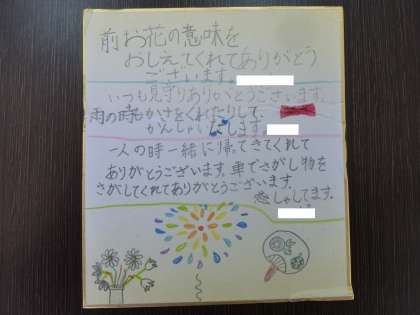 前お花の意味を
おしえてくれてありがとう
ございます。
いつも見守りありがとうございます。
雨の時もかさをくれたりして、
かんしゃいたします。
一人の時一緒に帰ってきてくれて
ありがとうございます。車でさがし物を
さがしてくれてありがとうございます。
感しゃしてます。